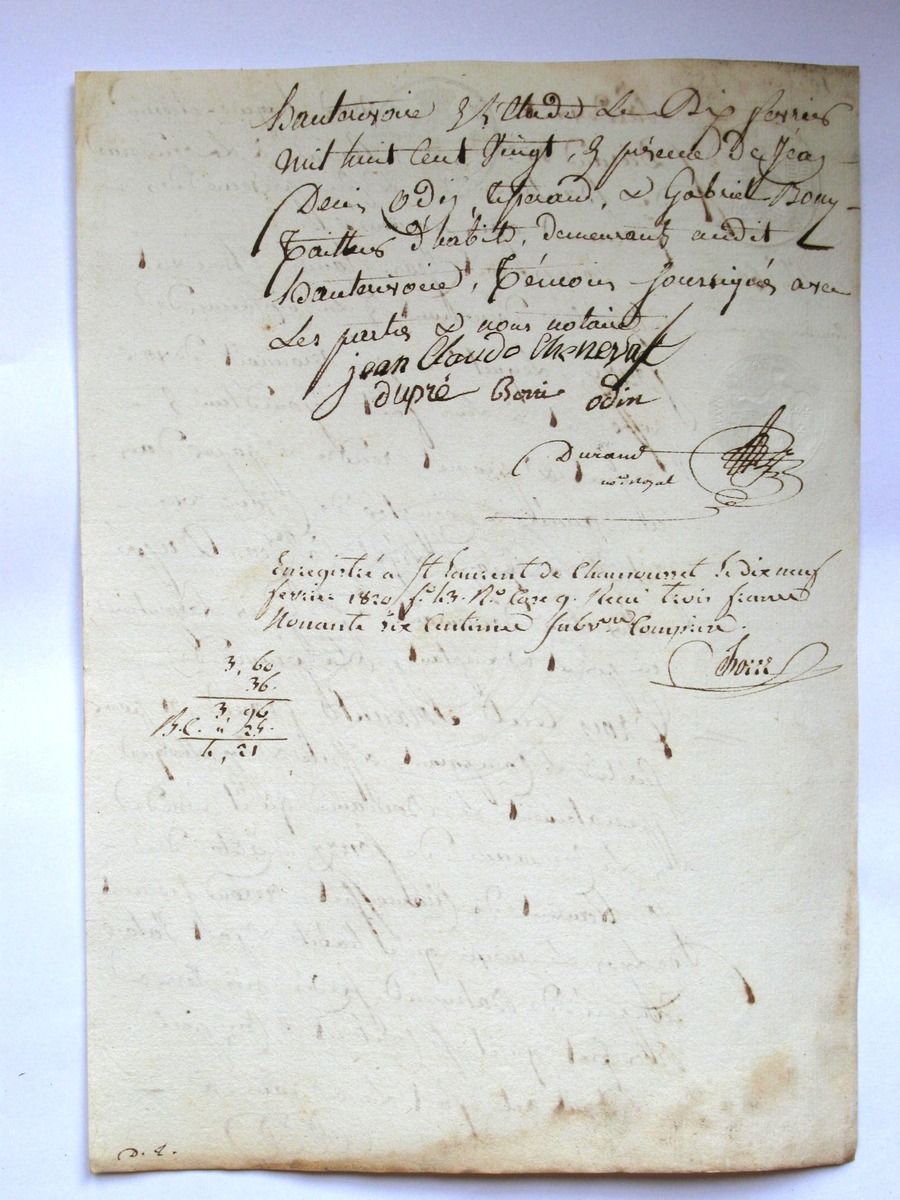 hauterivoire Etude le Dix fevrier
mil huit Cent Vingt, En présence De Jean
Denis Odin, tisserand, & Gabriel Bony
Tailleur d'habits, demeurants audit
hauterivoire, témoins soussignés avec
Les parties & nous notaire
jean Claude Chenevat
dupré Boni odin
Durand
no.re royal
Enregistré a St Laurent de Chamousset le dix neuf
fevrier 1820 f.o 43. R.o Case 9. Recu trois francs
Nonante six Centimes Subv.on Comprise.
3, 60
36.
3 96
à 25.
4, 21
D. 2.